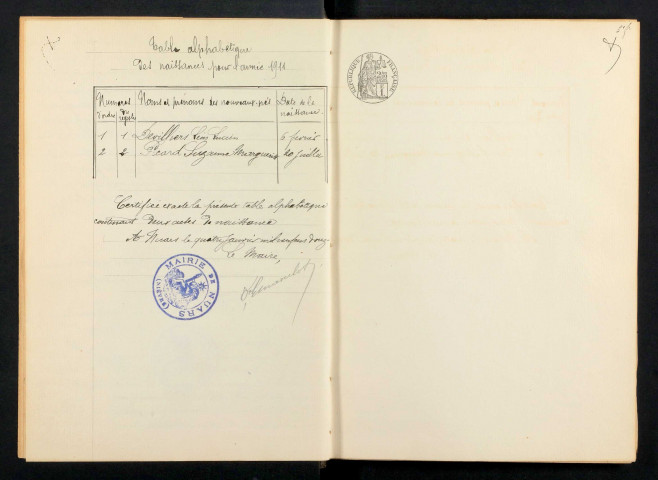 Table alphabétique
Des naissances pour l'année 1911
Numéros Noms et prénoms des nouveaux-nés Date de la
d'ordre du registre naissance
1 1 Léon Lucien 6 février
2 2 Picard Suzanne Marguerite 20 juillet
Certifiée exacte la présente table alphabétique
contenant deux actes de naissance
A Nuars le quatre janvier mil neuf cent douze
Le Maire,
MAIRIE DE NUARS (NIÈVRE)
RÉPUBLIQUE FRANÇAISE